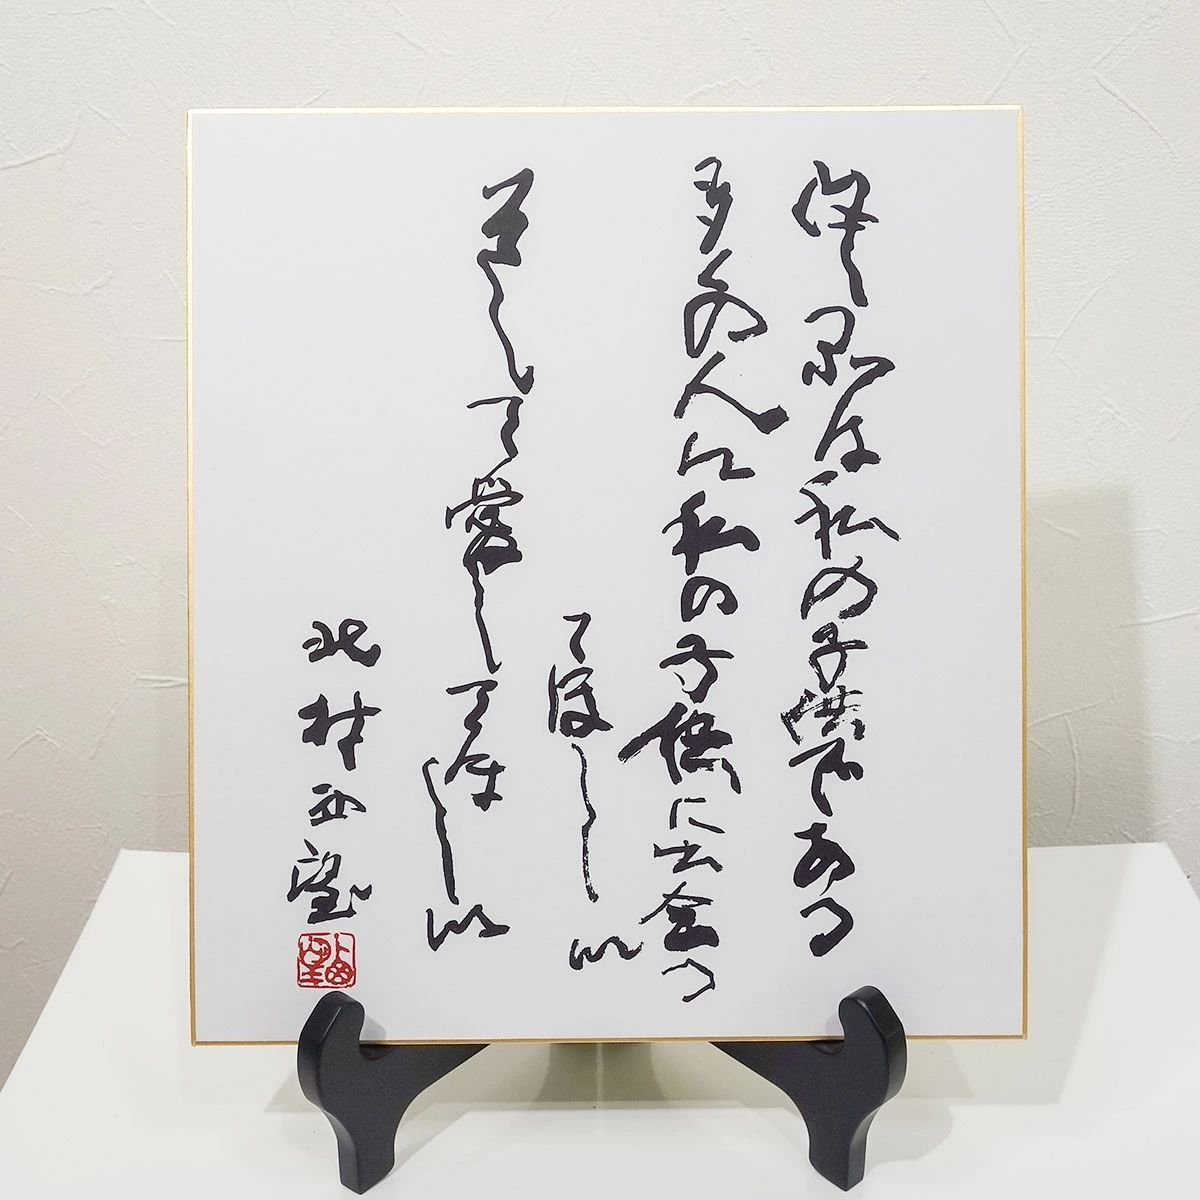 作品は私の子供である
多くの人に私の子供に出会つ
てほしい
そして愛してほしい
北村西望